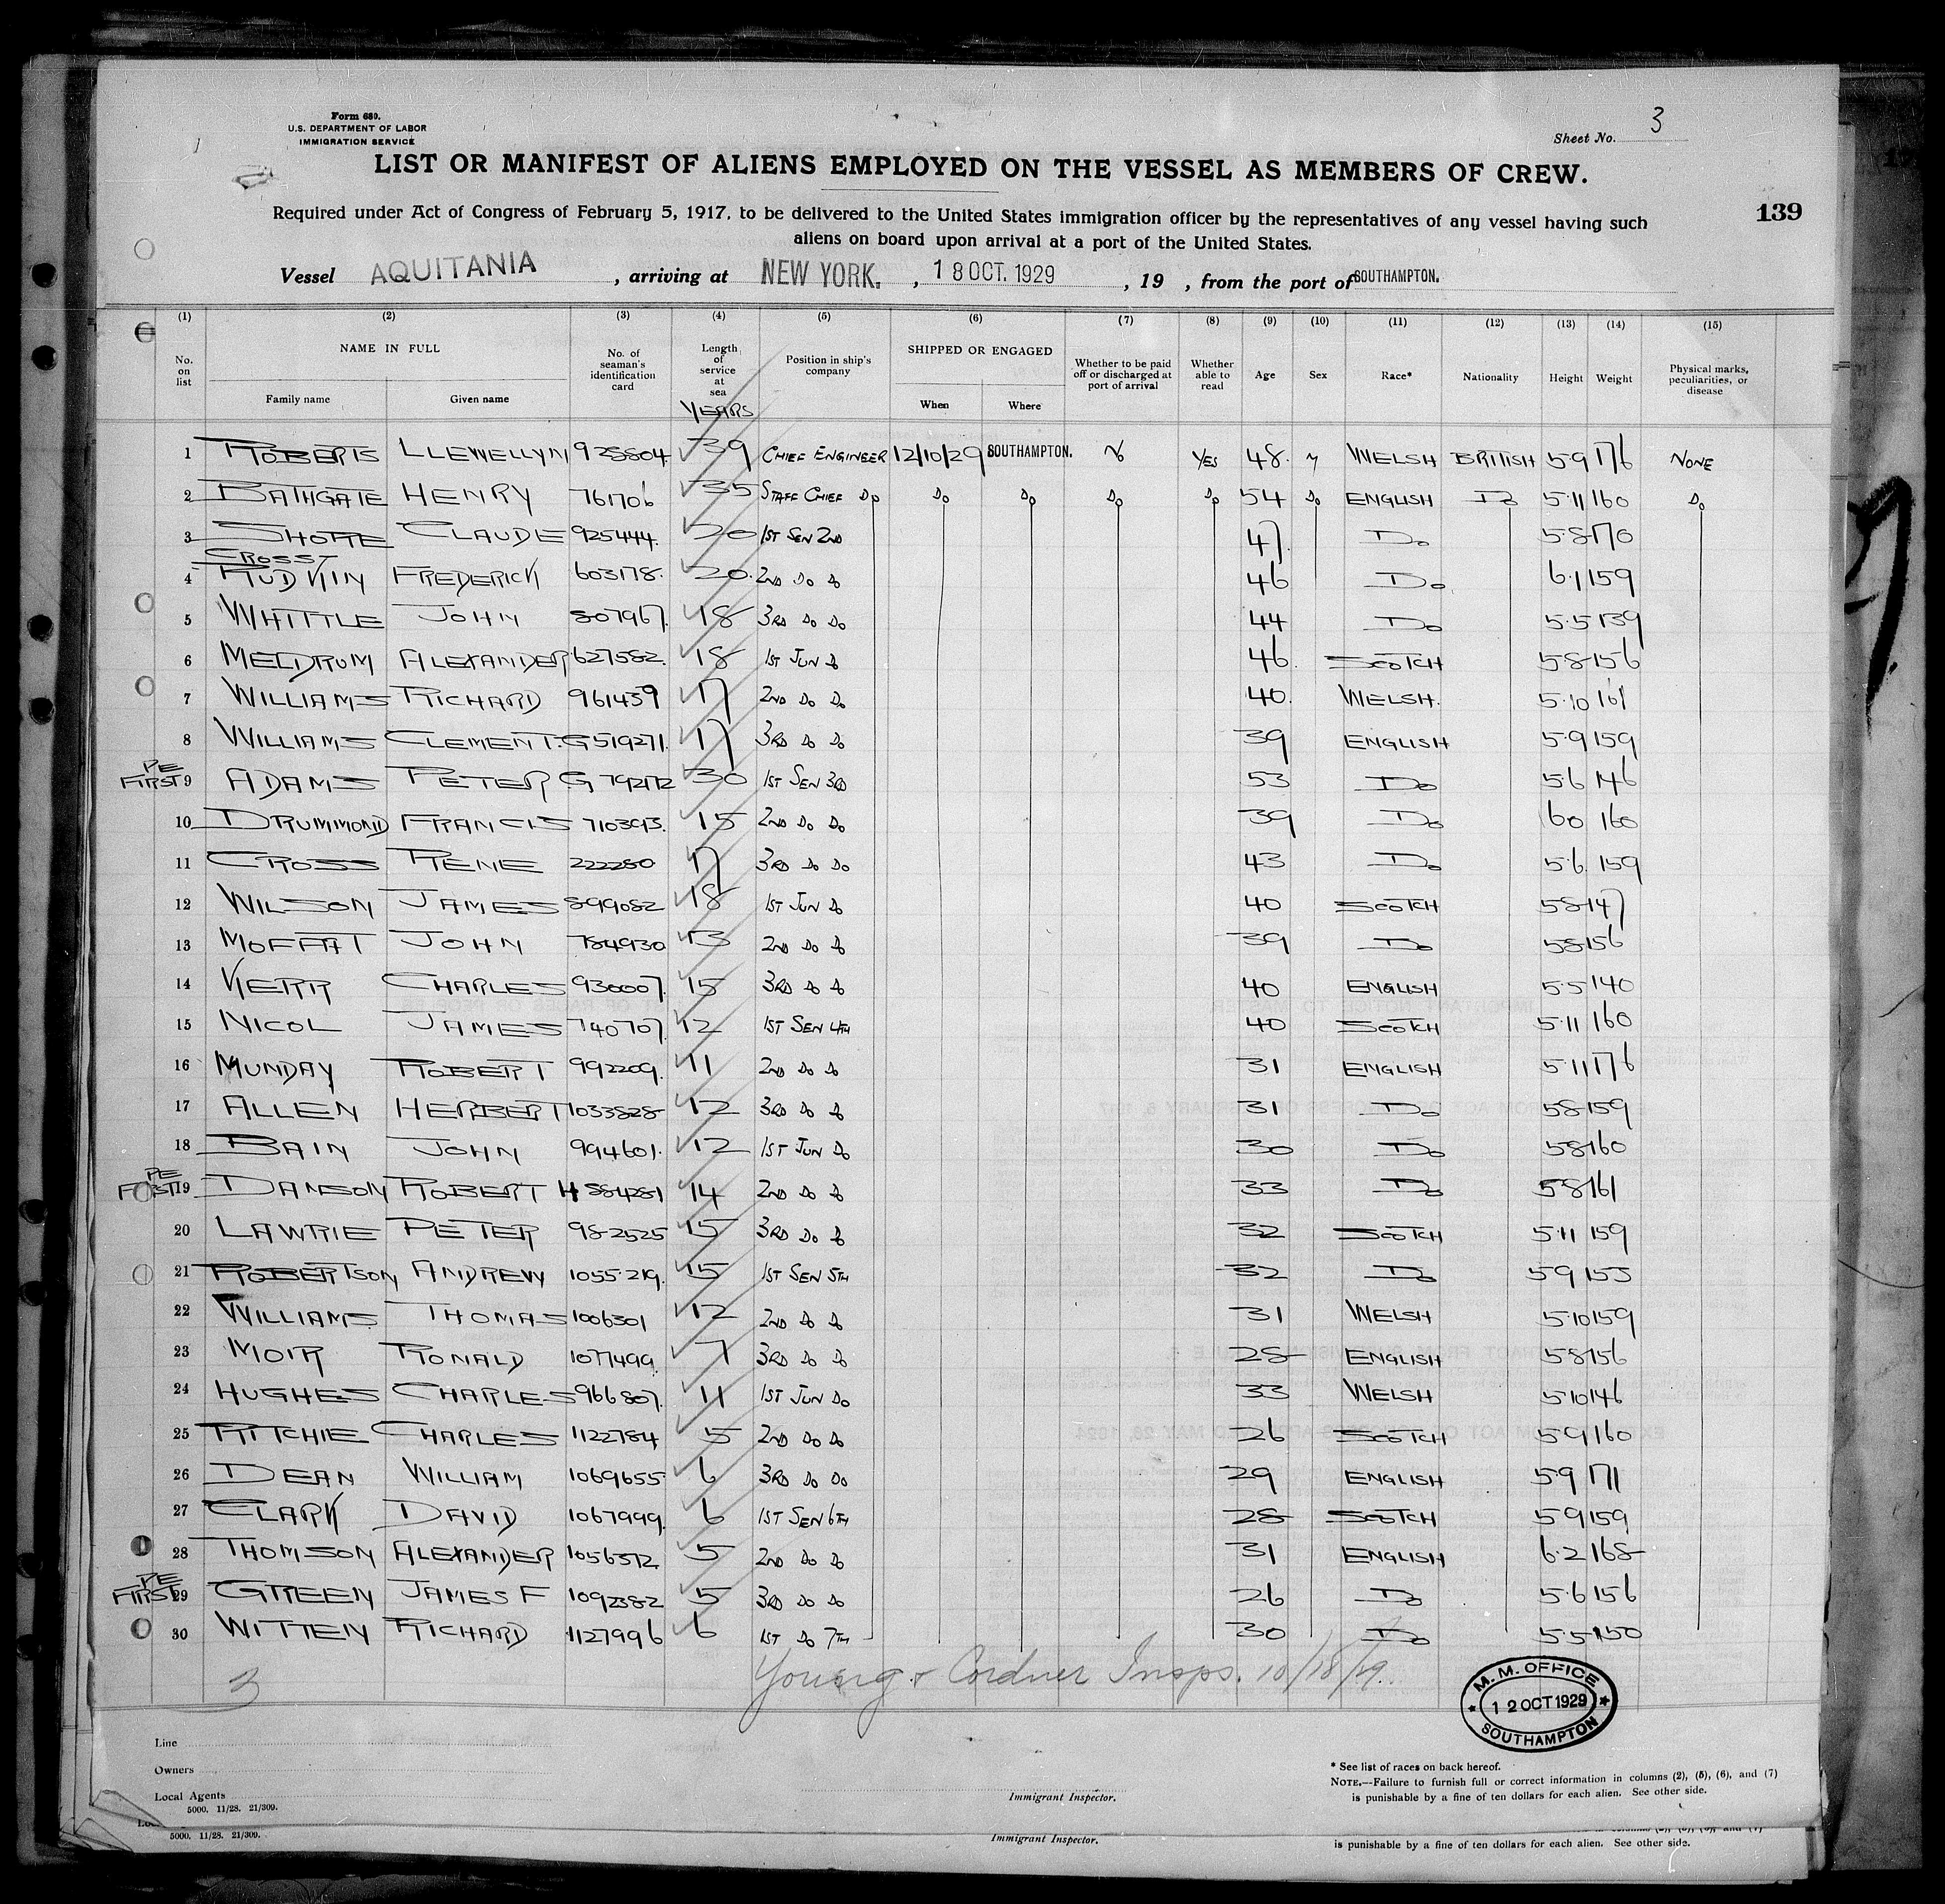 Form 680.
U.S. DEPARTMENT OF LABOR
IMMIGRATION SERVICE
Sheet No. 3
LIST OR MANIFEST OF ALIENS EMPLOYED ON THE VESSEL AS MEMBERS OF CREW.
139
Required under Act of Congress of February 5, 1917, to be delivered to the United States immigration officer by the representatives of any vessel having such
aliens on board upon arrival at a port of the United States.
Vessel AQUITANIA , arriving at NEW YORK. , 18 OCT. 1929 , 19 , from the port of SOUTHAMPTON.
(1) (2) (3) (4) (5) (6) (7) (8) (9) (10) (11) (12) (13) (14) (15)
No. on list NAME IN FULL Family name Given name No. of seaman's identification card Length of service at sea YEARS Position in ship's company SHIPPED OR ENGAGED When Where Whether to be paid off or discharged at port of arrival Whether able to read Age Sex Race* Nationality Height Weight Physical marks, peculiarities, or disease
1 ROBERTS LLEWELLYN 928804 39 CHIEF ENGINEER 12/10/29 SOUTHAMPTON. No YES 48 M WELSH BRITISH 5·9 176 NONE
2 BATHGATE HENRY 761706 35 STAFF CHIEF Do Do Do Do Do 54 Do ENGLISH Do 5·11 160 Do
3 SHORE CLAUDE 925444 20 1ST SEN 2ND 47 Do 5·8 170
CROSST
4 RUDKIN FREDERICK 603178 20 2ND Do Do 46 Do 6·1 159
5 WHITTLE JOHN 807967 18 3RD Do Do 44 Do 5·5 139
6 MELDRUM ALEXANDER 627582 18 1ST JUN Do 46 SCOTCH 5·8 156
7 WILLIAMS RICHARD 961439 17 2ND Do Do 40 WELSH 5·10 161
8 WILLIAMS CLEMENT.G 519271 17 3RD Do Do 39 ENGLISH 5·9 159
PE FIRST 9 ADAMS PETER G 792172 30 1ST SEN 3RD 53 Do 5·6 146
10 DRUMMOND FRANCIS 710393 15 2ND Do Do 39 Do 6·0 160
11 CROSS RENE 222280 17 3RD Do Do 43 Do 5·6 159
12 WILSON JAMES 899082 18 1ST JUN Do 40 SCOTCH 5·8 147
13 MOFFAT JOHN 784930 13 2ND Do Do 39 Do 5·8 156
14 KERR CHARLES 930007 15 3RD Do Do 40 ENGLISH 5·5 140
15 NICOL JAMES 740707 12 1ST SEN 4TH 40 SCOTCH 5·11 160
16 MUNDAY ROBERT 992209 11 2ND Do Do 31 ENGLISH 5·11 176
17 ALLEN HERBERT 1033828 12 3RD Do Do 31 Do 5·8 159
18 BAIN JOHN 994601 12 1ST JUN Do 30 Do 5·8 160
PE FIRST 19 DANSON ROBERT H 884281 14 2ND Do Do 33 Do 5·8 161
20 LAWRIE PETER 982525 15 3RD Do Do 32 SCOTCH 5·11 159
21 ROBERTSON ANDREW 1055219 15 1ST SEN 5TH 32 Do 5·9 153
22 WILLIAMS THOMAS 1006301 12 2ND Do Do 31 WELSH 5·10 159
23 MOIR RONALD 1077499 7 3RD Do Do 28 ENGLISH 5·8 156
24 HUGHES CHARLES 966807 11 1ST JUN Do 33 WELSH 5·10 146
25 RITCHIE CHARLES 1122784 5 2ND Do Do 26 SCOTCH 5·9 160
26 DEAN WILLIAM 1069655 6 3RD Do Do 29 ENGLISH 5·9 171
27 CLARK DAVID 1067999 6 1ST SEN 6TH 28 SCOTCH 5·9 159
28 THOMSON ALEXANDER 1056572 5 2ND Do Do 31 ENGLISH 6·2 168
PE FIRST 29 GREEN JAMES F 1092382 5 3RD Do Do 26 Do 5·6 156
30 WITTEN RICHARD 1127996 6 1ST Do 7TH 30 Do 5·5 150
3 Young & Cordner Insps. 10/18/29.
M. M. OFFICE
12 OCT 1929
SOUTHAMPTON
Line
Owners
Local Agents
5000. 11/28. 21/309.
Immigrant Inspector.
* See list of races on back hereof.
NOTE.—Failure to furnish full or correct information in columns (2), (5), (6), and (7)
is punishable by a fine of ten dollars for each alien. See other side.
5000. 11/28. 21/309.
Immigrant Inspector.
is punishable by a fine of ten dollars for each alien. See other side.